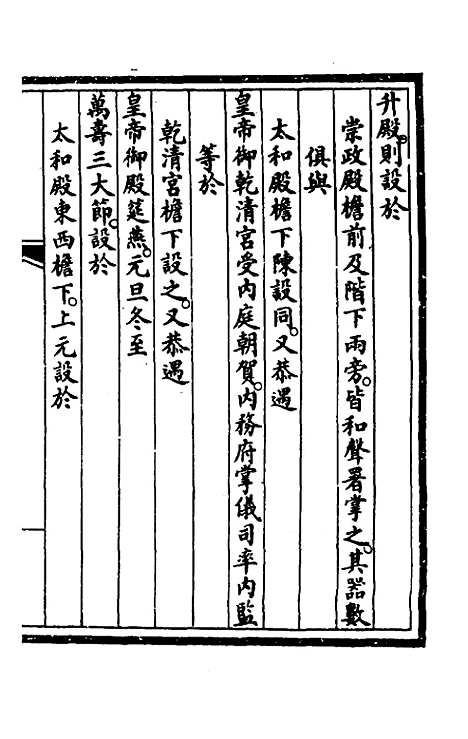 升殿則設於
崇政殿檐前及階下兩旁。皆和聲署掌之。其器數
俱與
太和殿檐下陳設同。又恭遇
皇帝御乾清宮受內庭朝賀。內務府掌儀司率內監
等於
乾清宮檐下設之。又恭遇
皇帝御殿筵燕。元旦冬至
萬壽三大節。設於
太和殿東西檐下。上元設於